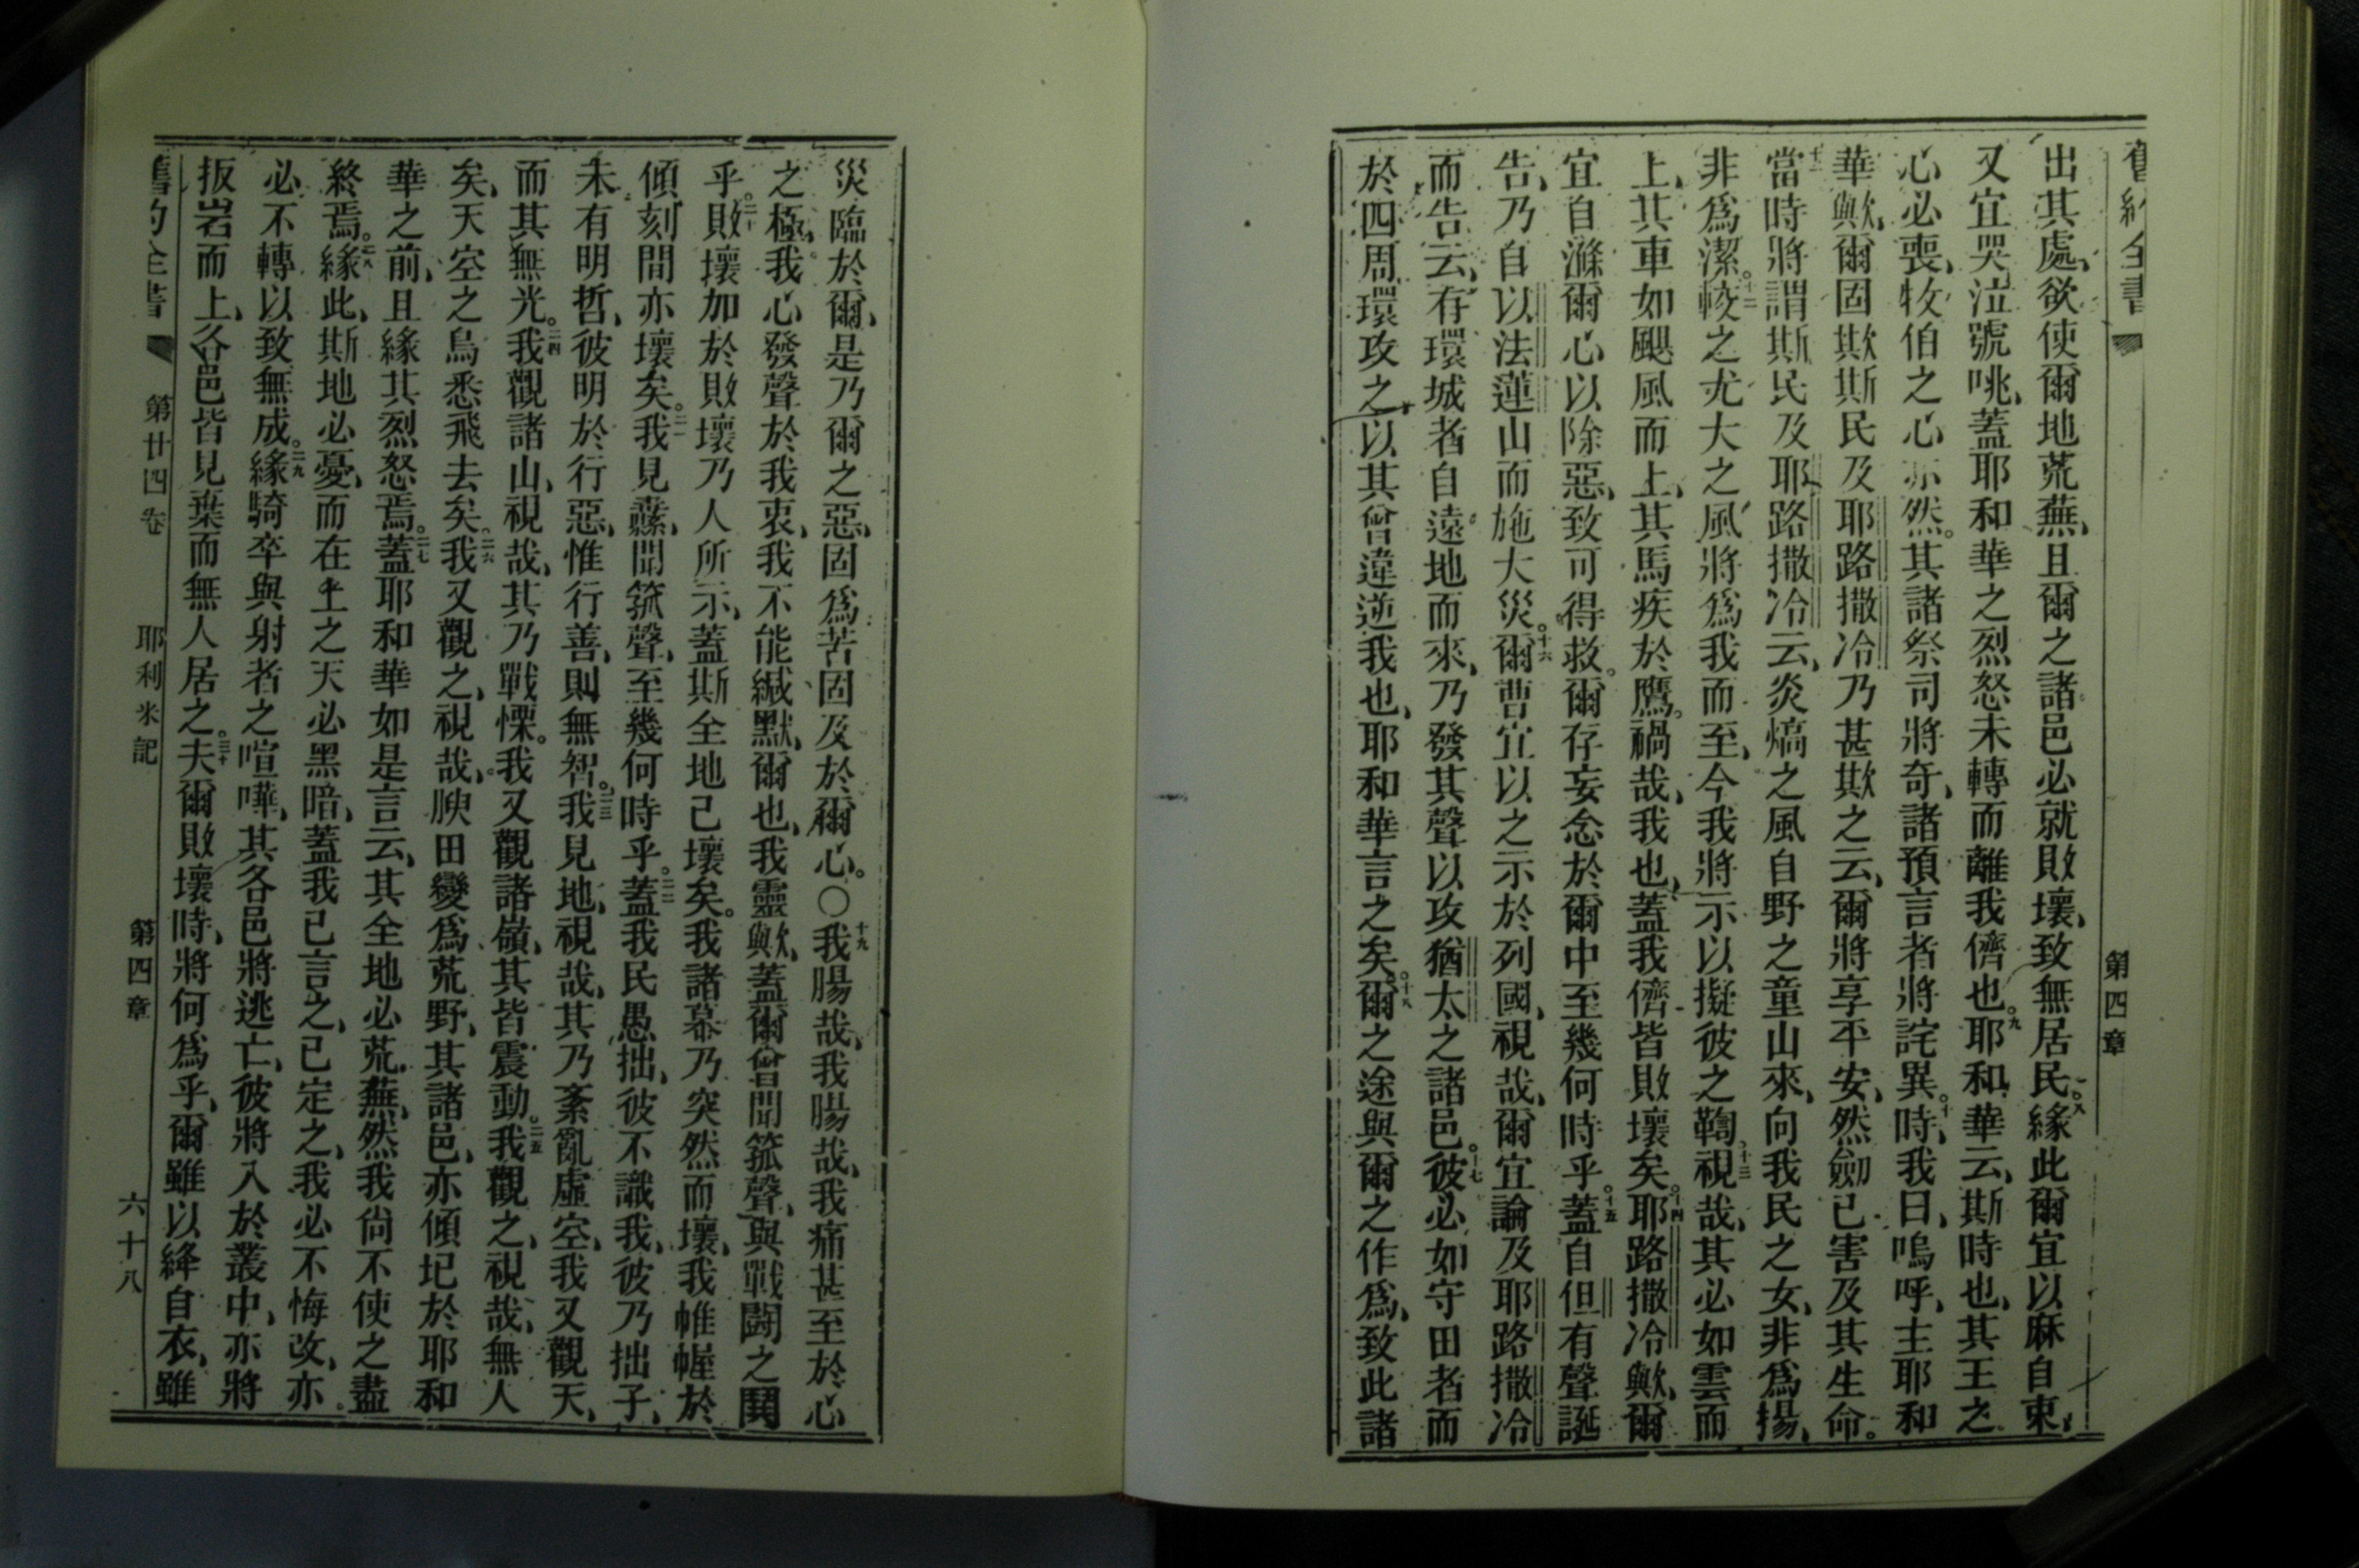 舊約全書
第四章
出其處、欲使爾地荒蕪、且爾之諸邑必就敗壞、致無居民。八緣此爾宜以麻自束、
又宜哭泣號咷、蓋耶和華之烈怒未轉而離我儕也。九耶和華云、斯時也、其王之
心必喪、牧伯之心亦然。其諸祭司將奇、諸預言者將詫異。十時、我曰、嗚呼、主耶和
華歟、爾固欺斯民及耶路撒冷乃甚欺之云、爾將享平安、然劎已害及其生命。
十一當時將謂斯民及耶路撒冷云、炎熇之風自野之童山來、向我民之女、非爲揚、
非爲潔。十二較之尤大之風將爲我而至、今我將示以擬彼之鞫、十三視哉、其必如雲而
上、其車如颶風而上、其馬疾於鷹。禍哉、我也、蓋我儕皆敗壞矣。十四耶路撒冷歟、爾
宜自滌爾心以除惡、致可得救。爾存妄念於爾中至幾何時乎。十五蓋自但有聲誕
告、乃自以法蓮山而施大災。十六爾曹宜以之示於列國、視哉、爾宜論及耶路撒冷
而告云、存環城者自遠地而來、乃發其聲以攻猶太之諸邑。十七彼必如守田者而
於四周環攻之、以其曾違逆我也、耶和華言之矣。十八爾之途與爾之作爲、致此諸
災臨於爾、是乃爾之惡、固爲苦固及於爾心。〇十九我腸哉、我腸哉、我痛甚至於心
之極、我心發聲於我衷、我不能緘默、爾也、我靈歟、蓋爾曾聞箛聲、與戰鬪之鬨
乎。二十敗壞加於敗壞乃人所示、蓋斯全地已壞矣。我諸幕乃突然而壞、我帷幄於
傾刻間亦壞矣。二一我見纛、聞箛聲、至幾何時乎。二二蓋我民愚拙、彼不識我、彼乃拙子、
未有明哲、彼明於行惡、惟行善、則無智。二三我見地、視哉、其乃紊亂虛空、我又觀天、
而其無光。二四我觀諸山、視哉、其乃戰慄。我又觀諸嶺、其皆震動。二五我觀之、視哉、無人
矣、天空之鳥悉飛去矣。二六我又觀之、視哉、腴田變爲荒野、其諸邑、亦傾圮於耶和
華之前、且緣其烈怒焉。二七蓋耶和華如是言云、其全地必荒蕪、然我尙不使之盡
終焉。二八緣此、斯地必憂、而在上之天必黑暗、蓋我已言之、已定之、我必不悔改、亦
必不轉以致無成。二九緣騎卒與射者之喧嘩、其各邑將逃亡、彼將入於叢中、亦將
扳岩而上、各邑皆見棄而無人居之。三十夫爾敗壞時、將何爲乎、爾雖以絳自衣、雖
舊約全書
第廿四卷
耶利米記
第四章
六十八